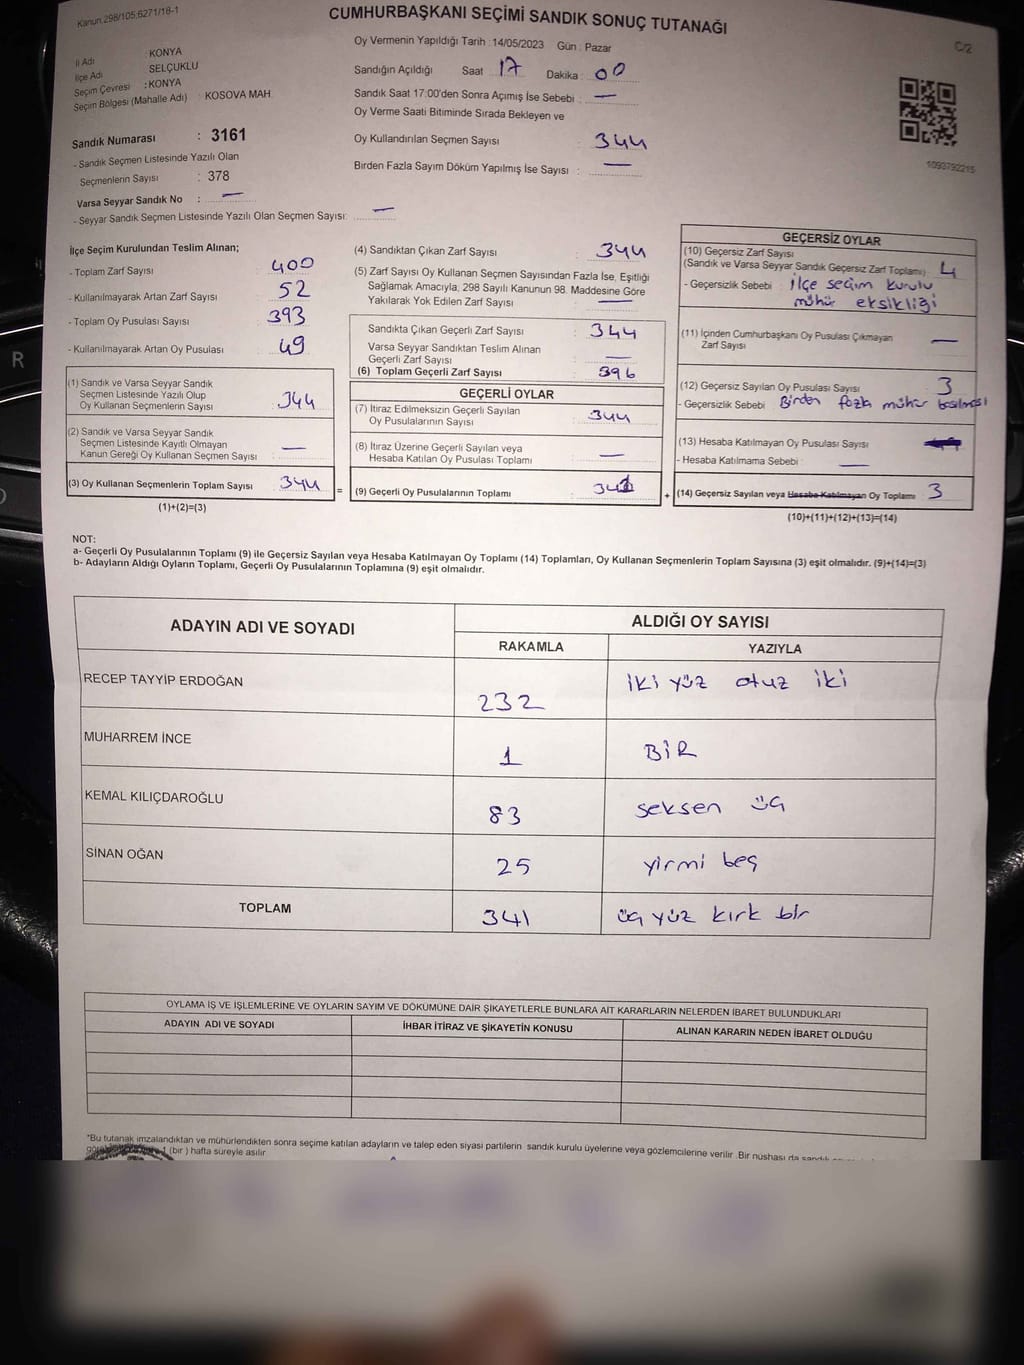 Kanun.298/105;6271/18-1
CUMHURBAŞKANI SEÇİMİ SANDIK SONUÇ TUTANAĞI
C/2
İl Adı KONYA
İlçe Adı SELÇUKLU
Seçim Çevresi : KONYA
Seçim Bölgesi (Mahalle Adı) : KOSOVA MAH.
Sandık Numarası : 3161
- Sandık Seçmen Listesinde Yazılı Olan
Seçmenlerin Sayısı : 378
Varsa Seyyar Sandık No : —
- Seyyar Sandık Seçmen Listesinde Yazılı Olan Seçmen Sayısı: —
Oy Vermenin Yapıldığı Tarih : 14/05/2023 Gün : Pazar
Sandığın Açıldığı Saat 17 Dakika : 00
Sandık Saat 17:00'den Sonra Açımış İse Sebebi : —
Oy Verme Saati Bitiminde Sırada Bekleyen ve
Oy Kullandırılan Seçmen Sayısı : 344
Birden Fazla Sayım Döküm Yapılmış İse Sayısı : —
1093792215
İlçe Seçim Kurulundan Teslim Alınan;
- Toplam Zarf Sayısı : 400
- Kullanılmayarak Artan Zarf Sayısı : 52
- Toplam Oy Pusulası Sayısı : 393
- Kullanılmayarak Artan Oy Pusulası : 49
(1) Sandık ve Varsa Seyyar Sandık
Seçmen Listesinde Yazılı Olup
Oy Kullanan Seçmenlerin Sayısı : 344
(2) Sandık ve Varsa Seyyar Sandık
Seçmen Listesinde Kayıtlı Olmayan
Kanun Gereği Oy Kullanan Seçmen Sayısı : —
(3) Oy Kullanan Seçmenlerin Toplam Sayısı : 344
(1)+(2)=(3)
=
(4) Sandıktan Çıkan Zarf Sayısı : 344
(5) Zarf Sayısı Oy Kullanan Seçmen Sayısından Fazla İse, Eşitliği
Sağlamak Amacıyla, 298 Sayılı Kanunun 98. Maddesine Göre
Yakılarak Yok Edilen Zarf Sayısı : —
Sandıkta Çıkan Geçerli Zarf Sayısı : 344
Varsa Seyyar Sandıktan Teslim Alınan
Geçerli Zarf Sayısı : —
(6) Toplam Geçerli Zarf Sayısı : 396
GEÇERLİ OYLAR
(7) İtiraz Edilmeksizin Geçerli Sayılan
Oy Pusulalarının Sayısı : 344
(8) İtiraz Üzerine Geçerli Sayılan veya
Hesaba Katılan Oy Pusulası Toplamı : —
(9) Geçerli Oy Pusulalarının Toplamı : 341
+
GEÇERSİZ OYLAR
(10) Geçersiz Zarf Sayısı
(Sandık ve Varsa Seyyar Sandık Geçersiz Zarf Toplamı) : 4
- Geçersizlik Sebebi : İlçe seçim kurulu
mühür eksikliği
(11) İçinden Cumhurbaşkanı Oy Pusulası Çıkmayan
Zarf Sayısı : —
(12) Geçersiz Sayılan Oy Pusulası Sayısı : 3
- Geçersizlik Sebebi Birden fazla mühür basılması
(13) Hesaba Katılmayan Oy Pusulası Sayısı
- Hesaba Katılmama Sebebi : —
(14) Geçersiz Sayılan veya Hesaba Katılmayan Oy Toplamı : 3
(10)+(11)+(12)+(13)=(14)
NOT:
a- Geçerli Oy Pusulalarının Toplamı (9) ile Geçersiz Sayılan veya Hesaba Katılmayan Oy Toplamı (14) Toplamları, Oy Kullanan Seçmenlerin Toplam Sayısına (3) eşit olmalıdır. (9)+(14)=(3)
b- Adayların Aldığı Oyların Toplamı, Geçerli Oy Pusulalarının Toplamına (9) eşit olmalıdır.
ADAYIN ADI VE SOYADI ALDIĞI OY SAYISI
RAKAMLA YAZIYLA
RECEP TAYYİP ERDOĞAN 232 iki yüz otuz iki
MUHARREM İNCE 1 BİR
KEMAL KILIÇDAROĞLU 83 seksen üç
SİNAN OĞAN 25 yirmi beş
TOPLAM 341 üç yüz kırk bir
OYLAMA İŞ VE İŞLEMLERİNE VE OYLARIN SAYIM VE DÖKÜMÜNE DAİR ŞİKAYETLERLE BUNLARA AİT KARARLARIN NELERDEN İBARET BULUNDUKLARI
ADAYIN ADI VE SOYADI İHBAR İTİRAZ VE ŞİKAYETİN KONUSU ALINAN KARARIN NEDEN İBARET OLDUĞU
*Bu tutanak imzalandıktan ve mühürlendikten sonra seçime katılan adayların ve talep eden siyasi partilerin sandık kurulu üyelerine veya gözlemcilerine verilir. Bir nüshası da sandık
(bir) hafta süreyle asılır